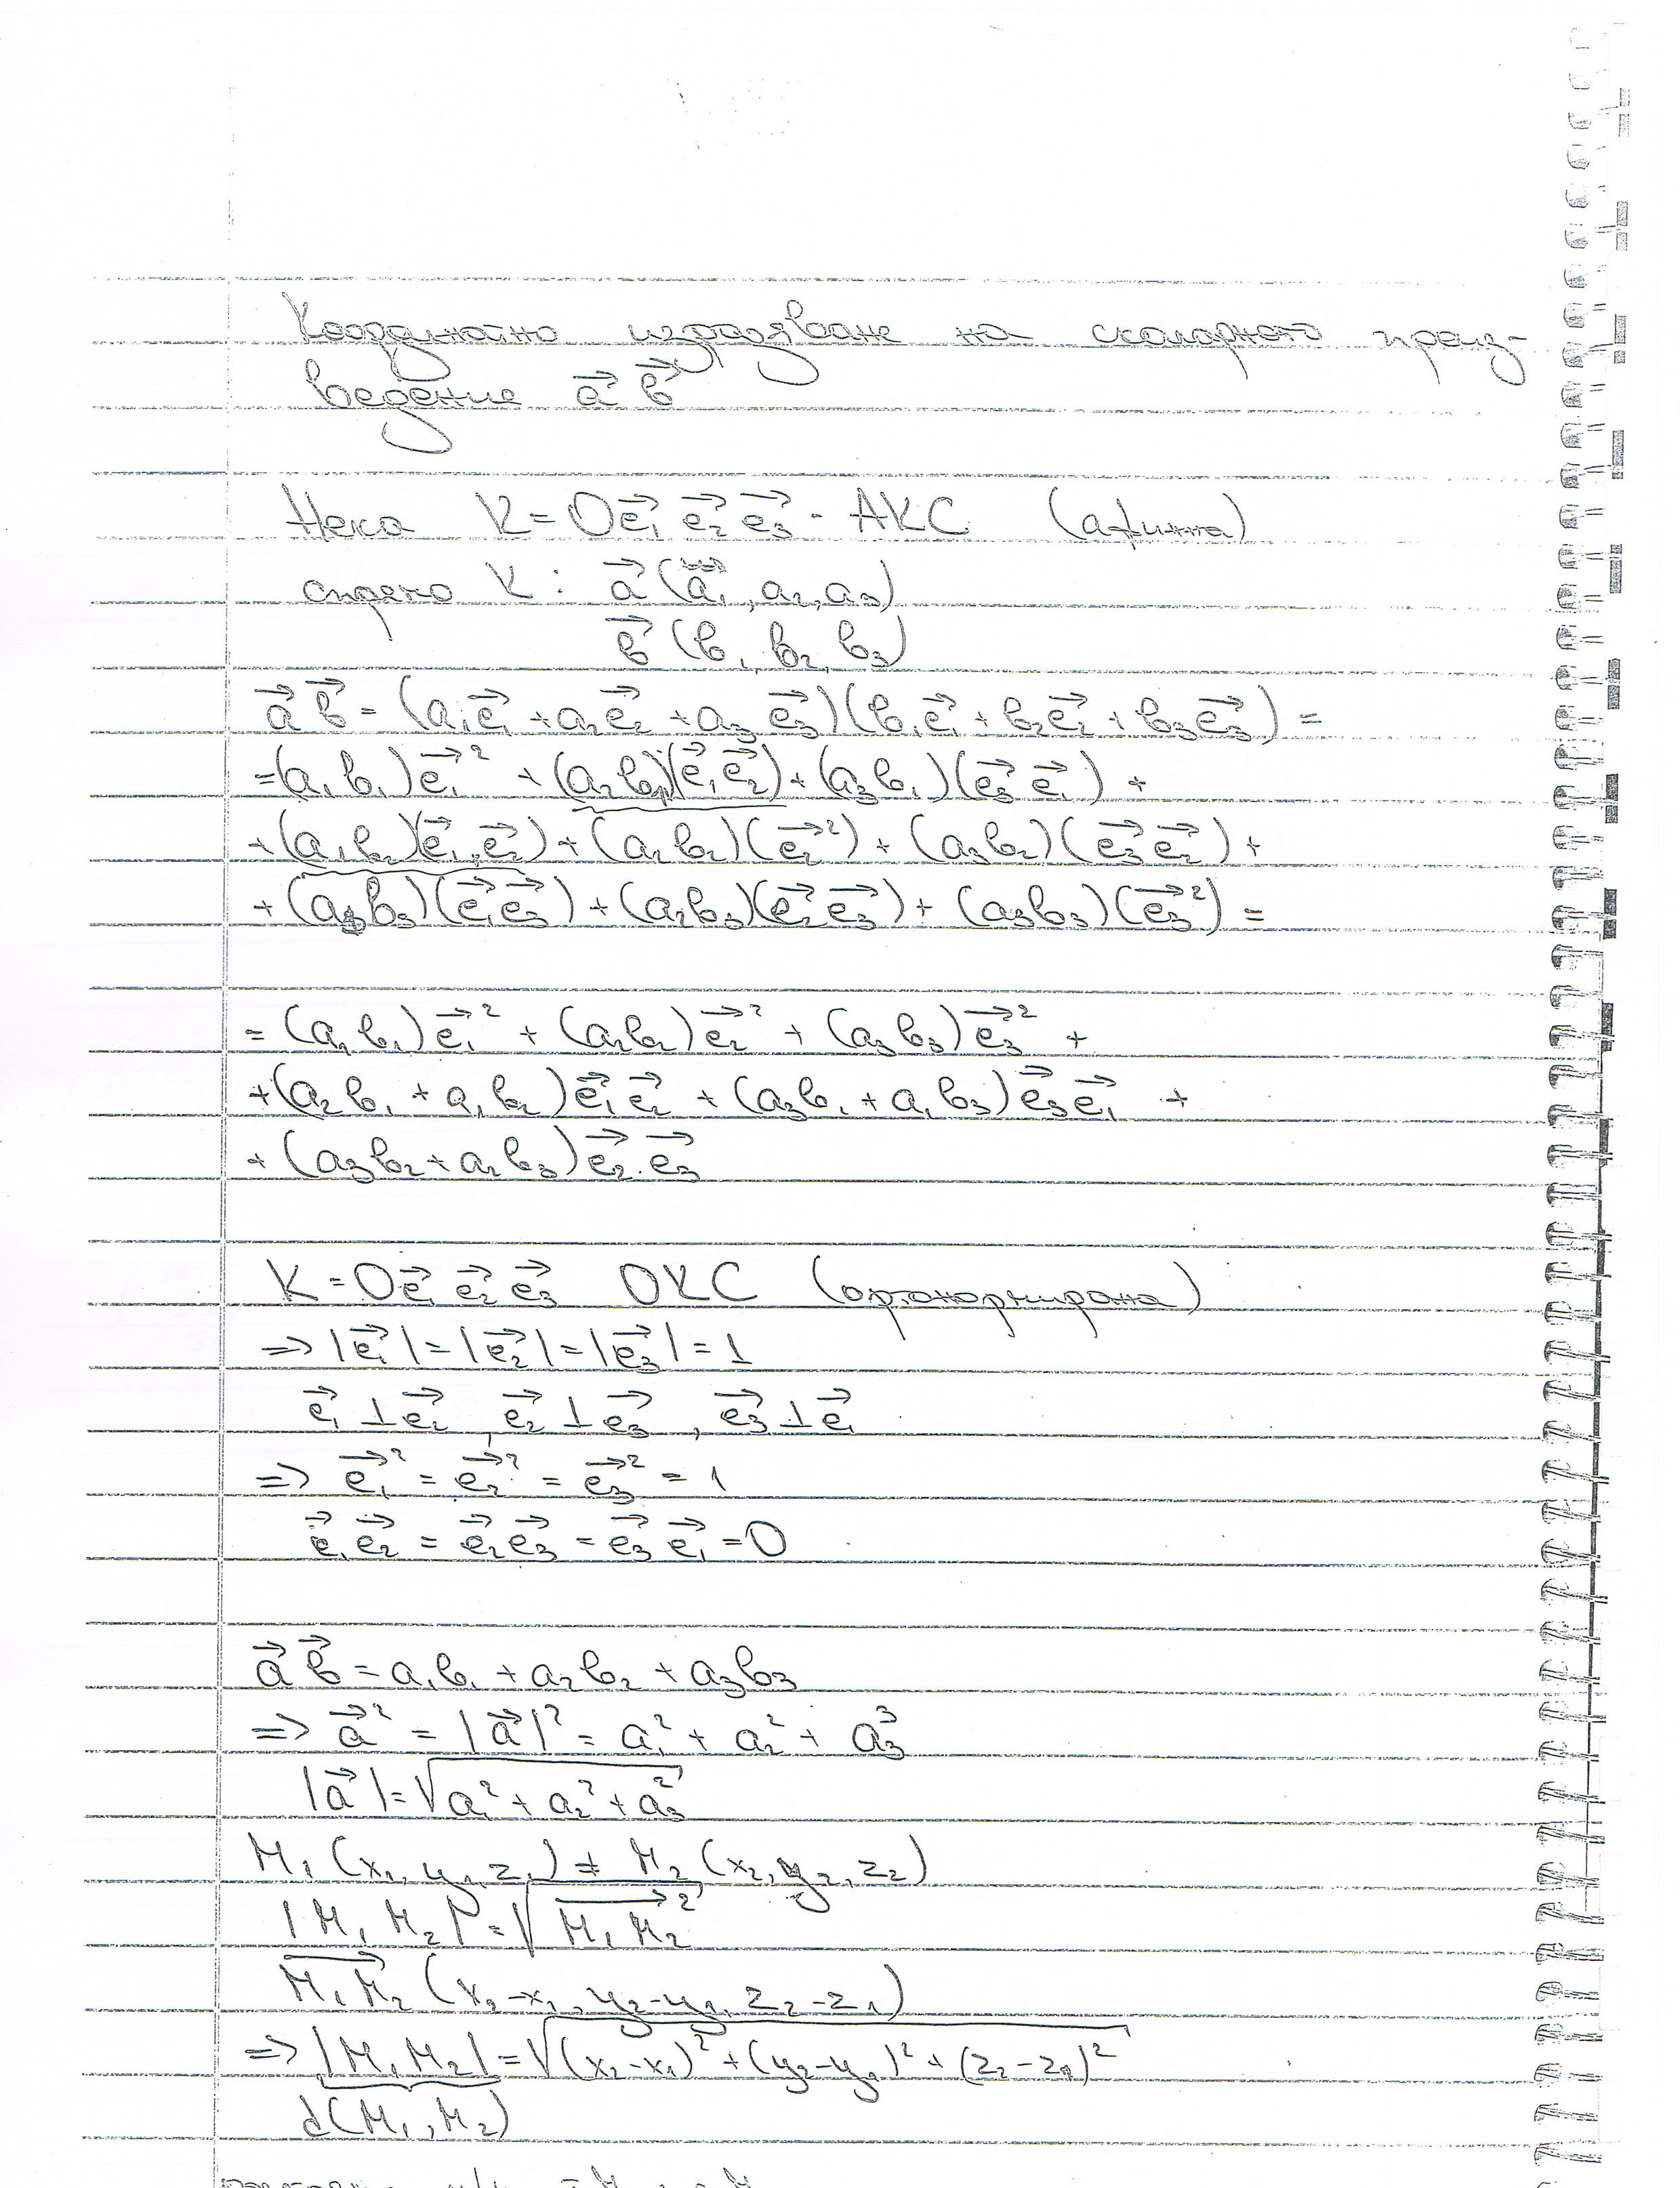 Координатно изразяване на скаларното произ-
ведение a⃗ b⃗
Нека K = Oe⃗₁ e⃗₂ e⃗₃ - АКС (афинна)
спрямо K : a⃗ (a₁, a₂, a₃)
b⃗ (b₁ b₂, b₃)
a⃗ b⃗ = (a₁e⃗₁ + a₂e⃗₂ + a₃ e⃗₃)(b₁e⃗₁ + b₂e⃗₂ + b₃e⃗₃) =
= (a₁ b₁) e⃗₁² + (a₂b₁)(e⃗₁ e⃗₂) + (a₃b₁)(e⃗₃ e⃗₁) +
+ (a₁b₂)(e⃗₁, e⃗₂) + (a₂b₂)(e⃗₂²) + (a₃b₂)(e⃗₃ e⃗₂) +
+ (a₃b₃)(e⃗₁ e⃗₃) + (a₂b₃)(e⃗₂ e⃗₃) + (a₃b₃)(e⃗₃²) =
= (a₁ b₁) e⃗₁² + (a₂b₂) e⃗₂² + (a₃ b₃) e⃗₃² +
+ (a₂b₁ + a₁b₂) e⃗₁ e⃗₂ + (a₃b₁ + a₁b₃) e⃗₃ e⃗₁ +
+ (a₃b₂ + a₂b₃) e⃗₂ . e⃗₃
K = Oe⃗₁ e⃗₂ e⃗₃ ОКС (ортонормирана)
=> |e⃗₁| = |e⃗₂| = |e⃗₃| = 1
e⃗₁ ⊥ e⃗₂, e⃗₂ ⊥ e⃗₃, e⃗₃ ⊥ e⃗₁
=> e⃗₁² = e⃗₂² = e⃗₃² = 1
e⃗₁ e⃗₂ = e⃗₂ e⃗₃ = e⃗₃ e⃗₁ = 0
a⃗ b⃗ = a₁b₁ + a₂b₂ + a₃b₃
=> a⃗² = |a⃗|² = a₁² + a₂² + a₃³
|a⃗| = √(a₁² + a₂² + a₃²)
M₁ (x₁, y₁, z₁) ≠ M₂ (x₂, y₂, z₂)
|M₁ M₂| = √(M₁M₂⃗²)
M₁M₂⃗ (x₂-x₁, y₂-y₁, z₂-z₁)
=> |M₁M₂| = √((x₂-x₁)² + (y₂-y₁)² + (z₂-z₁)²)
d(M₁, M₂)